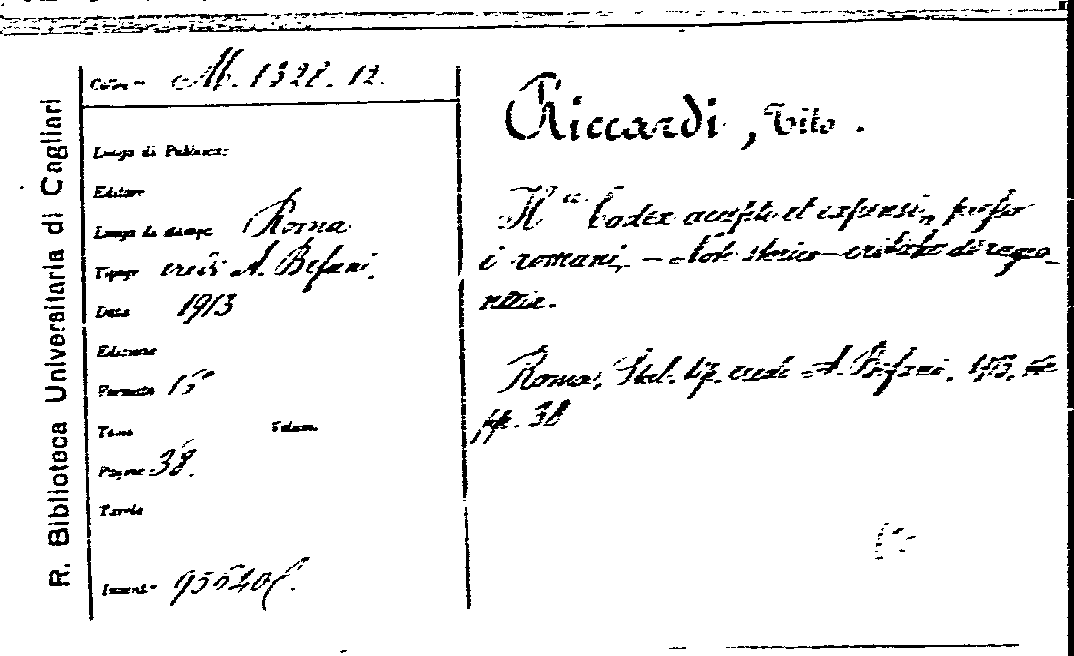 R. Biblioteca Universitaria di Cagliari
M. 1328. 12.
Luogo di Pubblicaz:
Editore
Luogo di stampa Roma
Tipogr eredi A. Befani.
Data 1913
Edizione
Formato
Tomo Volum.
Pagine 38.
Tavole
Invent.
Riccardi, Tito.
Il "Codex accepti et expensi„ presso
i romani, - Note storico-critiche di ragio-
neria.
Roma, Stab. tip. eredi A. Befani,
pp. 38